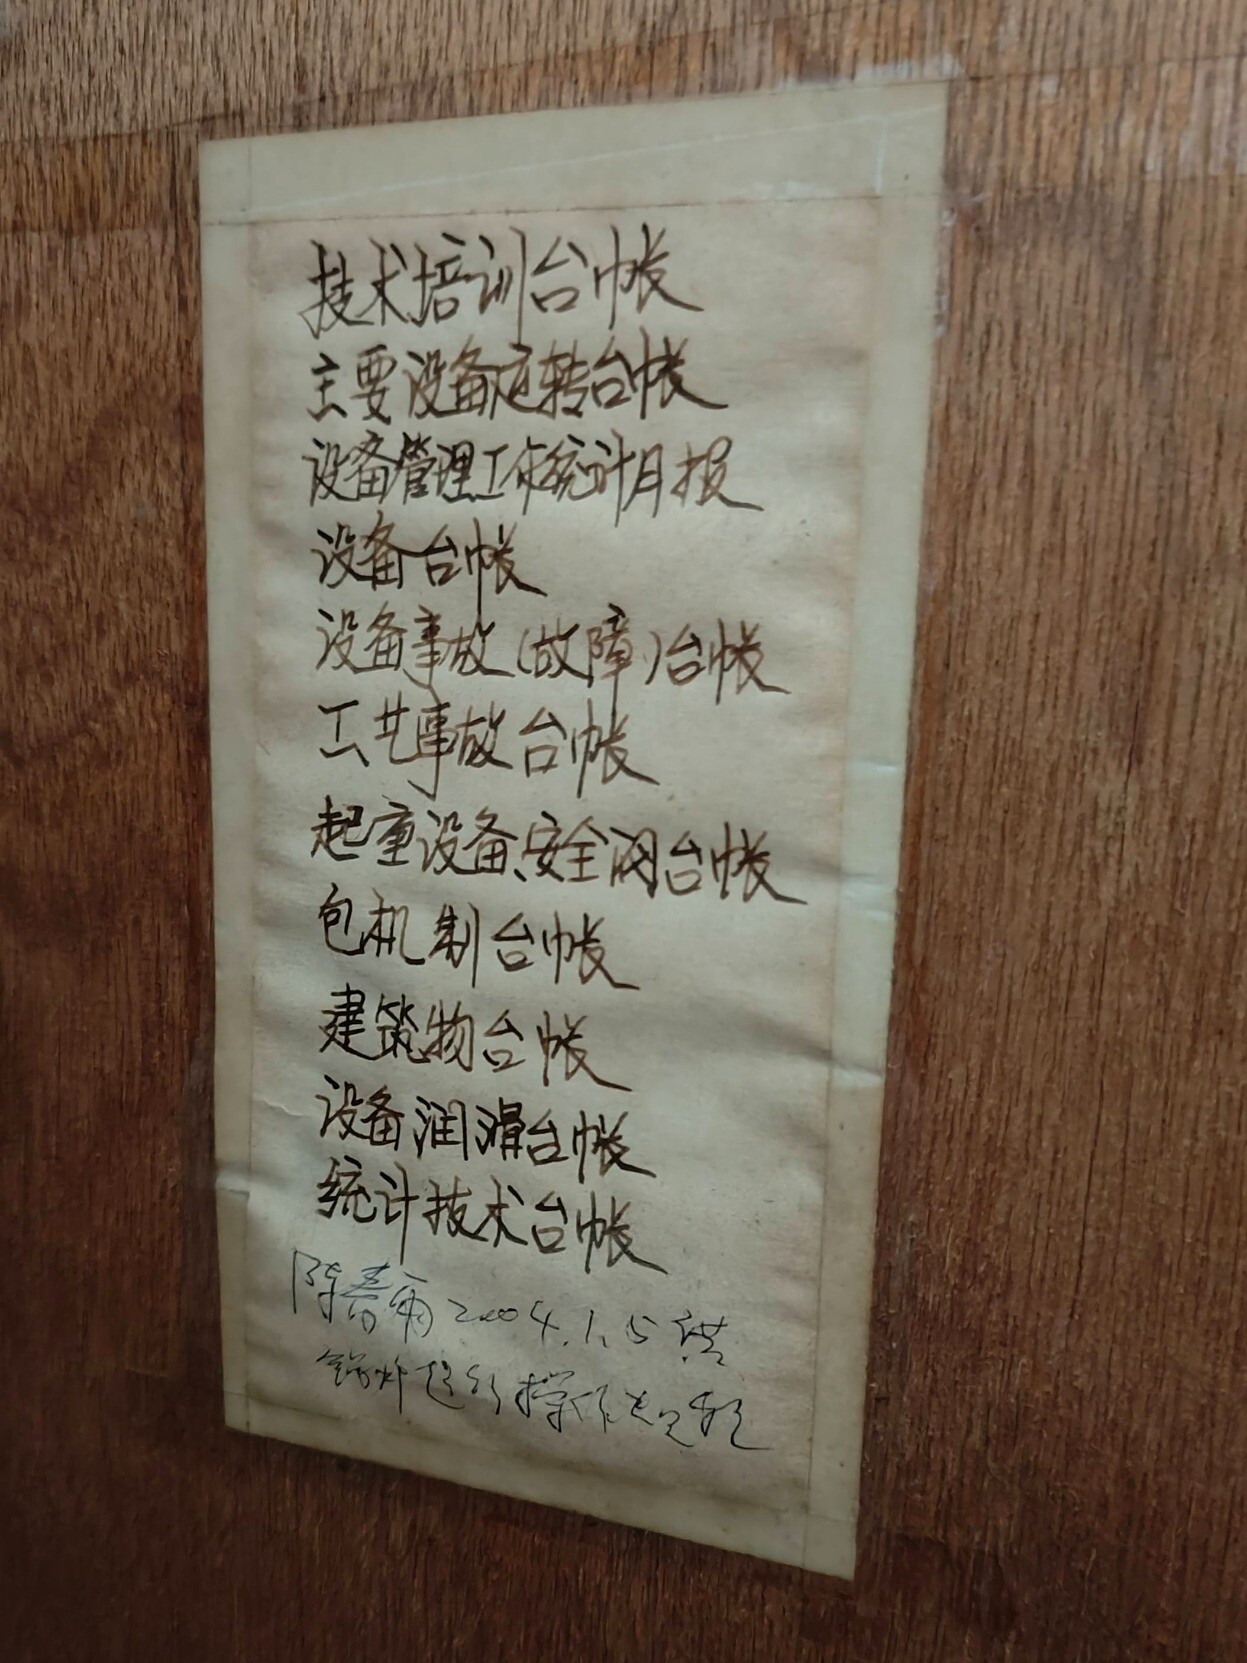 技术培训台帐
主要设备运转台帐
设备管理工作统计月报
设备台帐
设备事故(故障)台帐
工艺事故台帐
起重设备、安全阀台帐
包机制台帐
建筑物台帐
设备润滑台帐
统计技术台帐
陈春雨 2004.1.5
操作